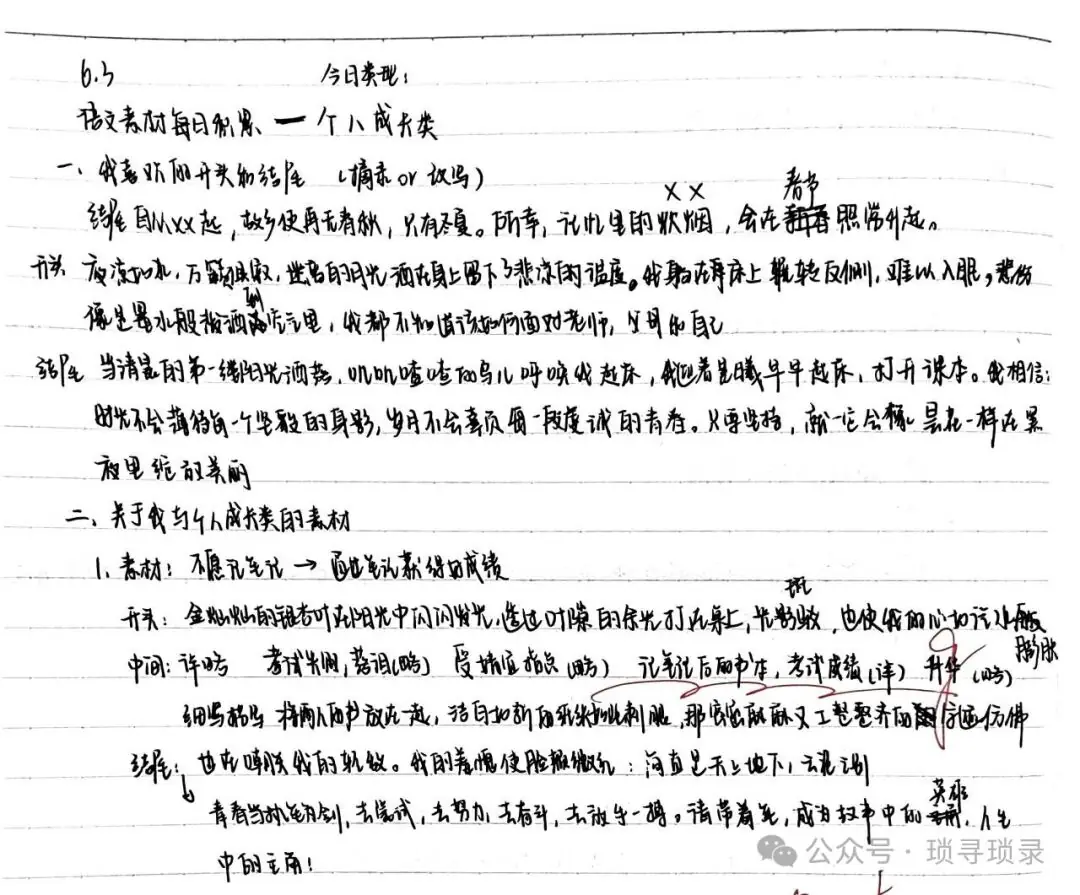 6.3 今日类型:
语文素材每日积累、一个人成长类
一、我喜欢的开头和结尾 (摘录or改写)
××春节
结尾 自从xx起,故乡便再无春秋,只有冬夏。所幸,记忆里的炊烟,会在新春照常升起。
开头 夜凉如水,万籁俱寂,迷离的月光洒在身上留下了悲凉的温度。我躺在床上辗转反侧,难以入眠,悲伤
像是墨水般 到 里,我都不知道该如何面对老师,父母和自己
结尾 当清晨的第一缕阳光洒落,叽叽喳喳的鸟儿呼唤我起床,我迎着晨曦早早起床,打开课本。我相信:
时光不会薄待每一个坚毅的身影,岁月不会辜负每一段虔诚的青春。只要坚持,就一定会像昙花一样在黑
夜里绽放美丽
二、关于我与个人成长类的素材
1、素材: 不愿记笔记→通过笔记获得好成绩
斑
开头: 金灿灿的银杏叶在阳光中闪闪发光,透过叶隙的余光打在桌上,光影驳,也使我的心如 般
膨胀
中间: 详略 考试失利,落泪(略) 受 指点(略) 记笔记后的书本,考试成绩(详) 升华(略)
细写描写 将两人的书放在一起,洁白如新的 如此刺眼,那密密麻麻又工整整齐的 字迹仿佛
结尾: 也在嘲 我的 。我的羞愧使脸颊微红:简直是天上地下,云泥之别
英雄
青春当 ,去尝试,去努力,去奋斗,去放手一搏。请带着光,成为故事中的 ,人生
中的主角!
公众号·琐寻琐录